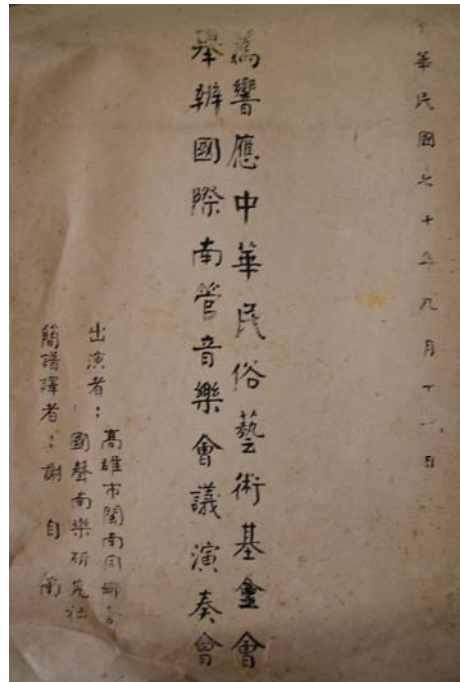 華民國七十年九月十一日
為響應中華民俗藝術基金會
舉辦國際南管音樂會議演奏會
出演者：
高雄市閩南同鄉會
國聲南樂研究社
簡譜譯者：謝自南